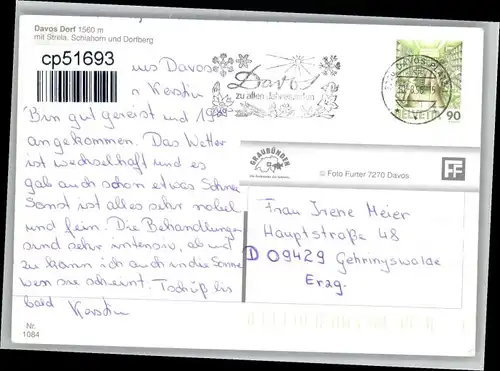 Davos Dorf 1560 m
mit Strela, Schiahorn und Dorfberg
cp51693
us Davos
Kerstin
Bin gut gereist und
angekommen. Das Wetter
ist wechselhaft und es
gab auch schon etwas Schnee
Sonst ist alles sehr nobel
und fein. Die Behandlungen
sind sehr intensiv, ab und
zu kann ich auch in die Sonne
wen sie scheint. Tschüß bis
bald Kerstin
Nr.
1084
Davos
zu allen Jahreszeiten
HELVETIA 90
GRAUBÜNDEN
© Foto Furter 7270 Davos
FF
Frau Irene Meier
Hauptstraße 48
D 09429 Gehringswalde
Erzg.